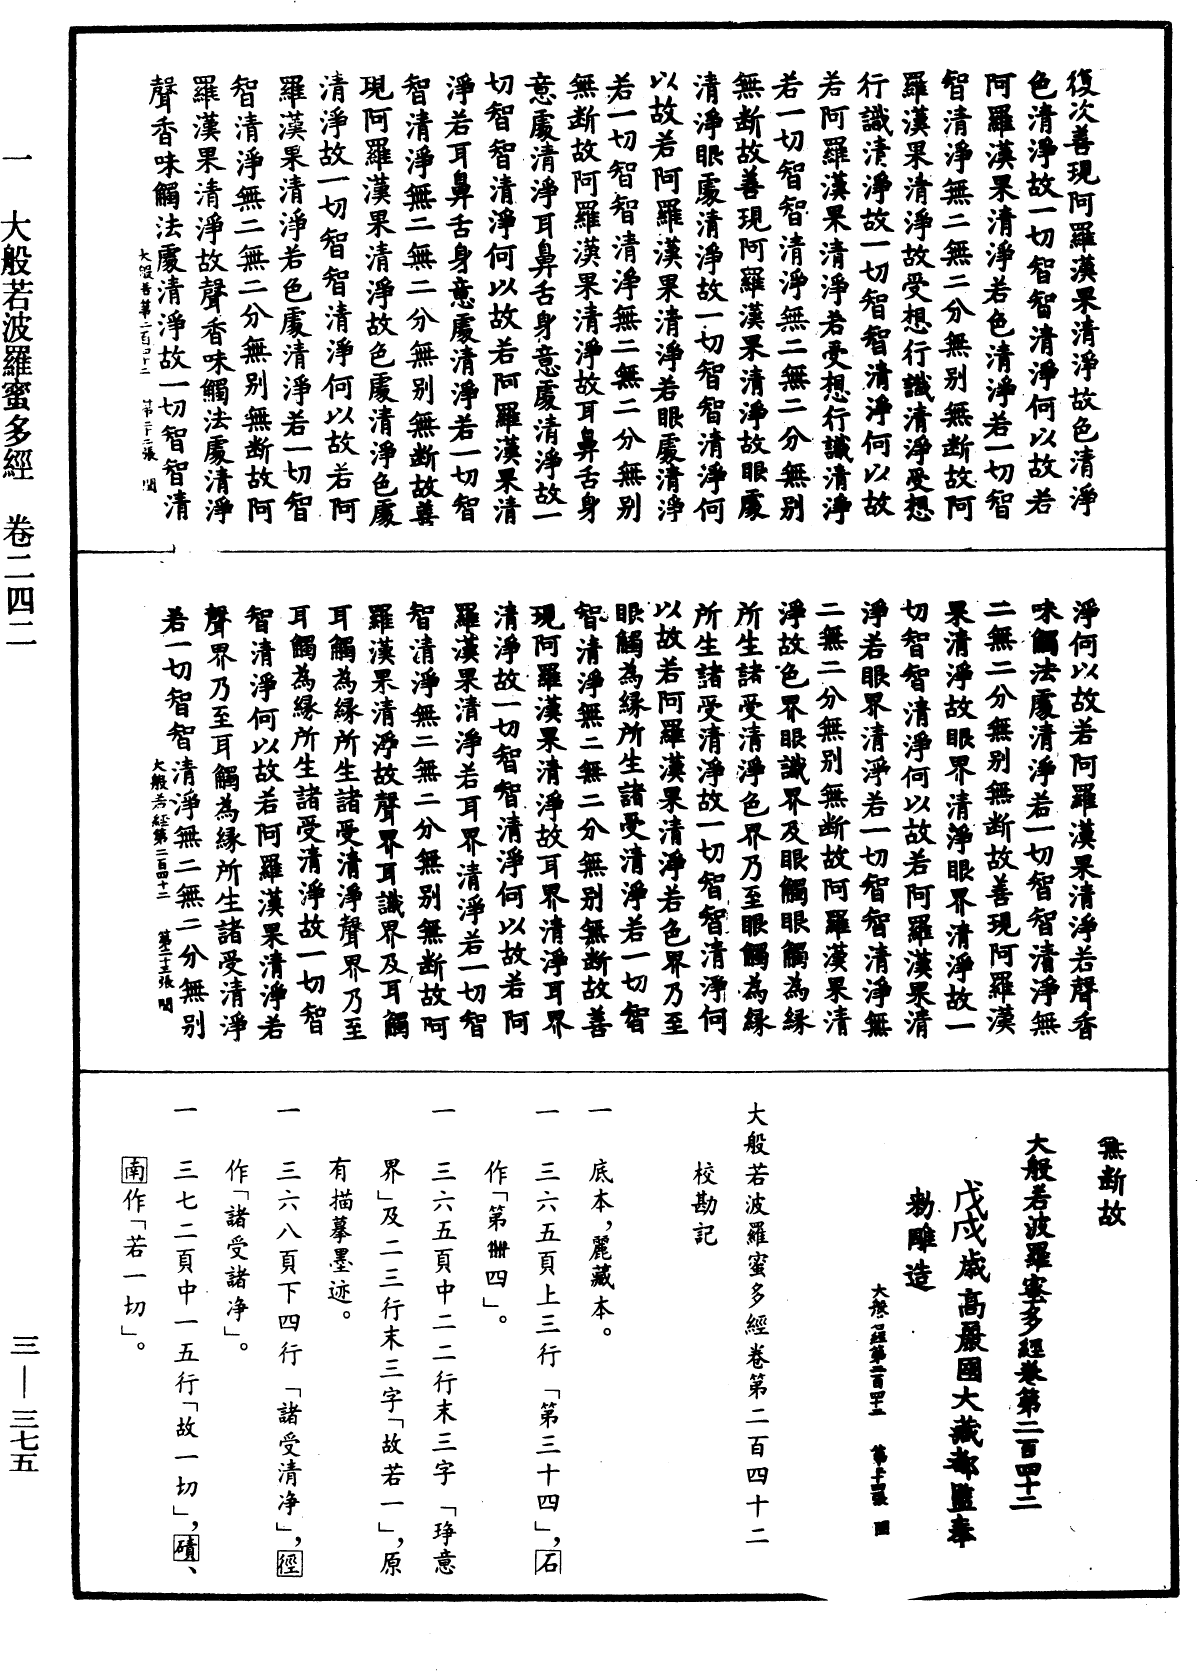 復次善現阿羅漢果清淨故色清淨
色清淨故一切智智清淨何以故若
阿羅漢果清淨若色清淨若一切智
智清淨無二無二分無別無斷故阿
羅漢果清淨故受想行識清淨受想
行識清淨故一切智智清淨何以故
若阿羅漢果清淨若受想行識清淨
若一切智智清淨無二無二分無別
無斷故善現阿羅漢果清淨故眼處
清淨眼處清淨故一切智智清淨何
以故若阿羅漢果清淨若眼處清淨
若一切智智清淨無二無二分無別
無斷故阿羅漢果清淨故耳鼻舌身
意處清淨耳鼻舌身意處清淨故一
切智智清淨何以故若阿羅漢果清
淨若耳鼻舌身意處清淨若一切智
智清淨無二無二分無別無斷故善
現阿羅漢果清淨故色處清淨色處
清淨故一切智智清淨何以故若阿
羅漢果清淨若色處清淨若一切智
智清淨無二無二分無別無斷故阿
羅漢果清淨故聲香味觸法處清淨
聲香味觸法處清淨故一切智智清
大般若第二百四十二 第二十二張 閏
淨何以故若阿羅漢果清淨若聲香
味觸法處清淨若一切智智清淨無
二無二分無別無斷故善現阿羅漢
果清淨故眼界清淨眼界清淨故一
切智智清淨何以故若阿羅漢果清
淨若眼界清淨若一切智智清淨無
二無二分無別無斷故阿羅漢果清
淨故色界眼識界及眼觸眼觸為緣
所生諸受清淨色界乃至眼觸為緣
所生諸受清淨故一切智智清淨何
以故若阿羅漢果清淨若色界乃至
眼觸為緣所生諸受清淨若一切智
智清淨無二無二分無別無斷故善
現阿羅漢果清淨故耳界清淨耳界
清淨故一切智智清淨何以故若阿
羅漢果清淨若耳界清淨若一切智
智清淨無二無二分無別無斷故阿
羅漢果清淨故聲界耳識界及耳觸
耳觸為緣所生諸受清淨聲界乃至
耳觸為緣所生諸受清淨故一切智
智清淨何以故若阿羅漢果清淨若
聲界乃至耳觸為緣所生諸受清淨
若一切智智清淨無二無二分無別
大般若經第二百四十二 第二十三張 閏
無斷故
大般若波羅蜜多經卷第二百四十二
戊戌歲高麗國大藏都監奉
勅雕造
大般若經第二百四十二 第二十四張 閏
大般若波羅蜜多經卷第二百四十二
校勘記
一 底本，麗藏本。
一 三六五頁上三行「第三十四」，石
作「第卌四」。
一 三六五頁中二二行末三字「琤意
界」及二三行末三字「故若一」，原
有描摹墨迹。
一 三六八頁下四行「諸受清净」，徑
作「諸受諸净」。
一 三七二頁中一五行「故一切」，磧、
南作「若一切」。
一 大般若波羅蜜多經 卷二四二
三—三七五